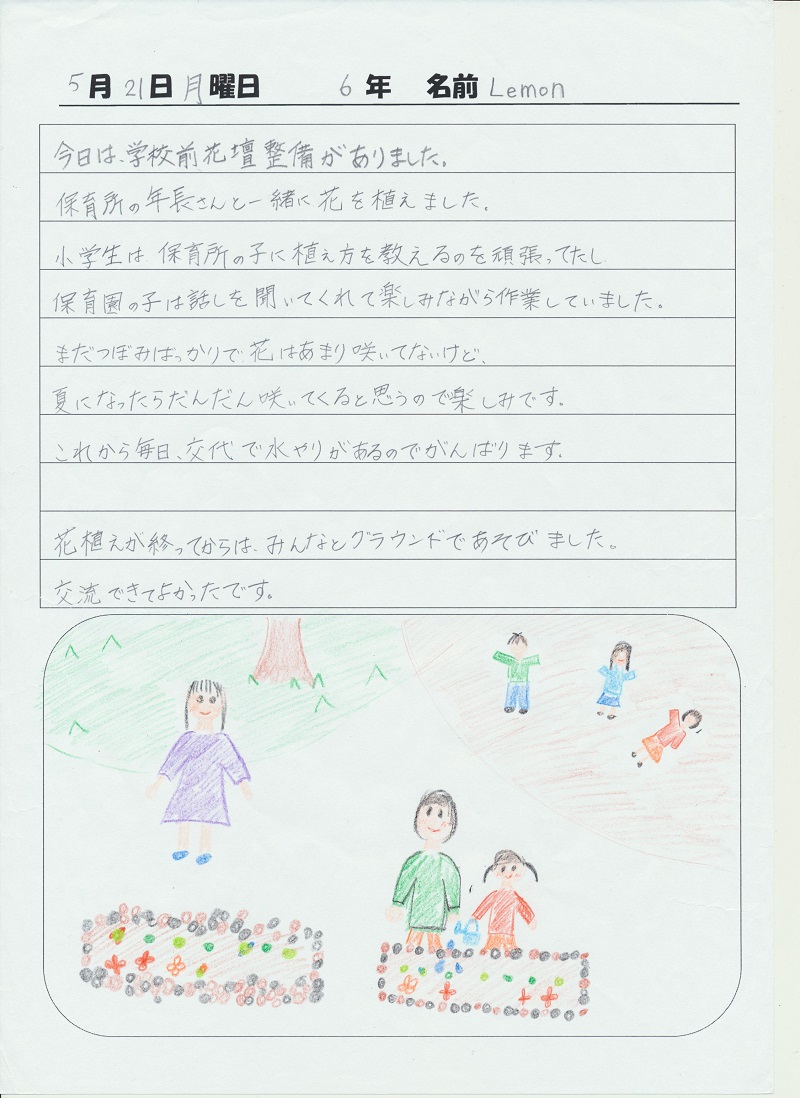 5月21日月曜日 6年 名前 Lemon
今日は、学校前花壇整備がありました。
保育所の年長さんと一緒に花を植えました。
小学生は、保育所の子に植え方を教えるのを頑張ってたし
保育園の子は話しを聞いてくれて楽しみながら作業していました。
まだつぼみばっかりで、花はあまり咲いてないけど、
夏になったらだんだん咲いてくると思うので楽しみです。
これから毎日、交代で水やりがあるのでがんばります。
花植えが終ってからは、みんなとグラウンドであそびました。
交流できてよかったです。